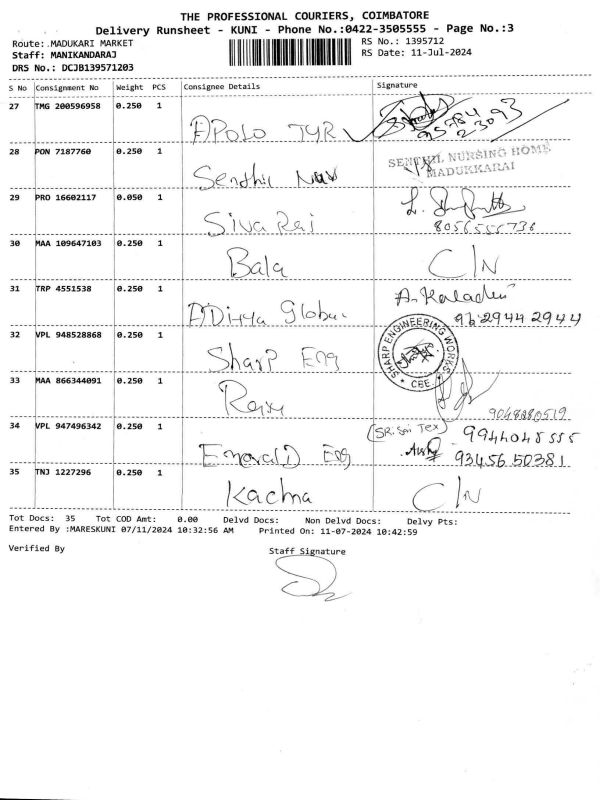 THE PROFESSIONAL COURIERS, COIMBATORE
Delivery Runsheet - KUNI - Phone No.:0422-3505555 - Page No.:3
Route: MADUKARI MARKET RS No.: 1395712
Staff: MANIKANDARAJ RS Date: 11-Jul-2024
DRS No.: DCJB139571203
S No Consignment No Weight PCS Consignee Details Signature
27 TMG 200596958 0.250 1
APOLO TYR
28 PON 7187760 0.250 1 SENTHIL NURSING HOME
MADUKKARAI
Senthil Nur
29 PRO 16602117 0.050 1
Siva Raj 8056555736
30 MAA 109647103 0.250 1
Bala C/N
31 TRP 4551538 0.250 1
ADitya Global 96 2944 2944
32 VPL 948528868 0.250 1 SHARP ENGINEERING WORKS
CBE.
Sharp Eng
33 MAA 866344091 0.250 1
9048880519
34 VPL 947496342 0.250 1 (SRi Sai Tex) 9944048555
Emerald Eng 93456 50381
35 TNJ 1227296 0.250 1
Kachna C/N
Tot Docs: 35 Tot COD Amt: 0.00 Delvd Docs: Non Delvd Docs: Delvy Pts:
Entered By :MARESKUNI 07/11/2024 10:32:56 AM Printed On: 11-07-2024 10:42:59
Verified By Staff Signature